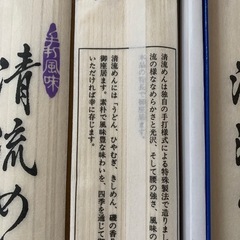 流め
清流めんは独自の手打様式による特殊製法で造りまし
流の様ななめらかさと光沢、そして腰の強さ、風味の
清流めんには「うどん、ひやむぎ、きしめん、磯の香
御座居ます。素朴で風味豊な味わいを、四季を通じて
いただければ幸に存じます。
手打風味
清流め